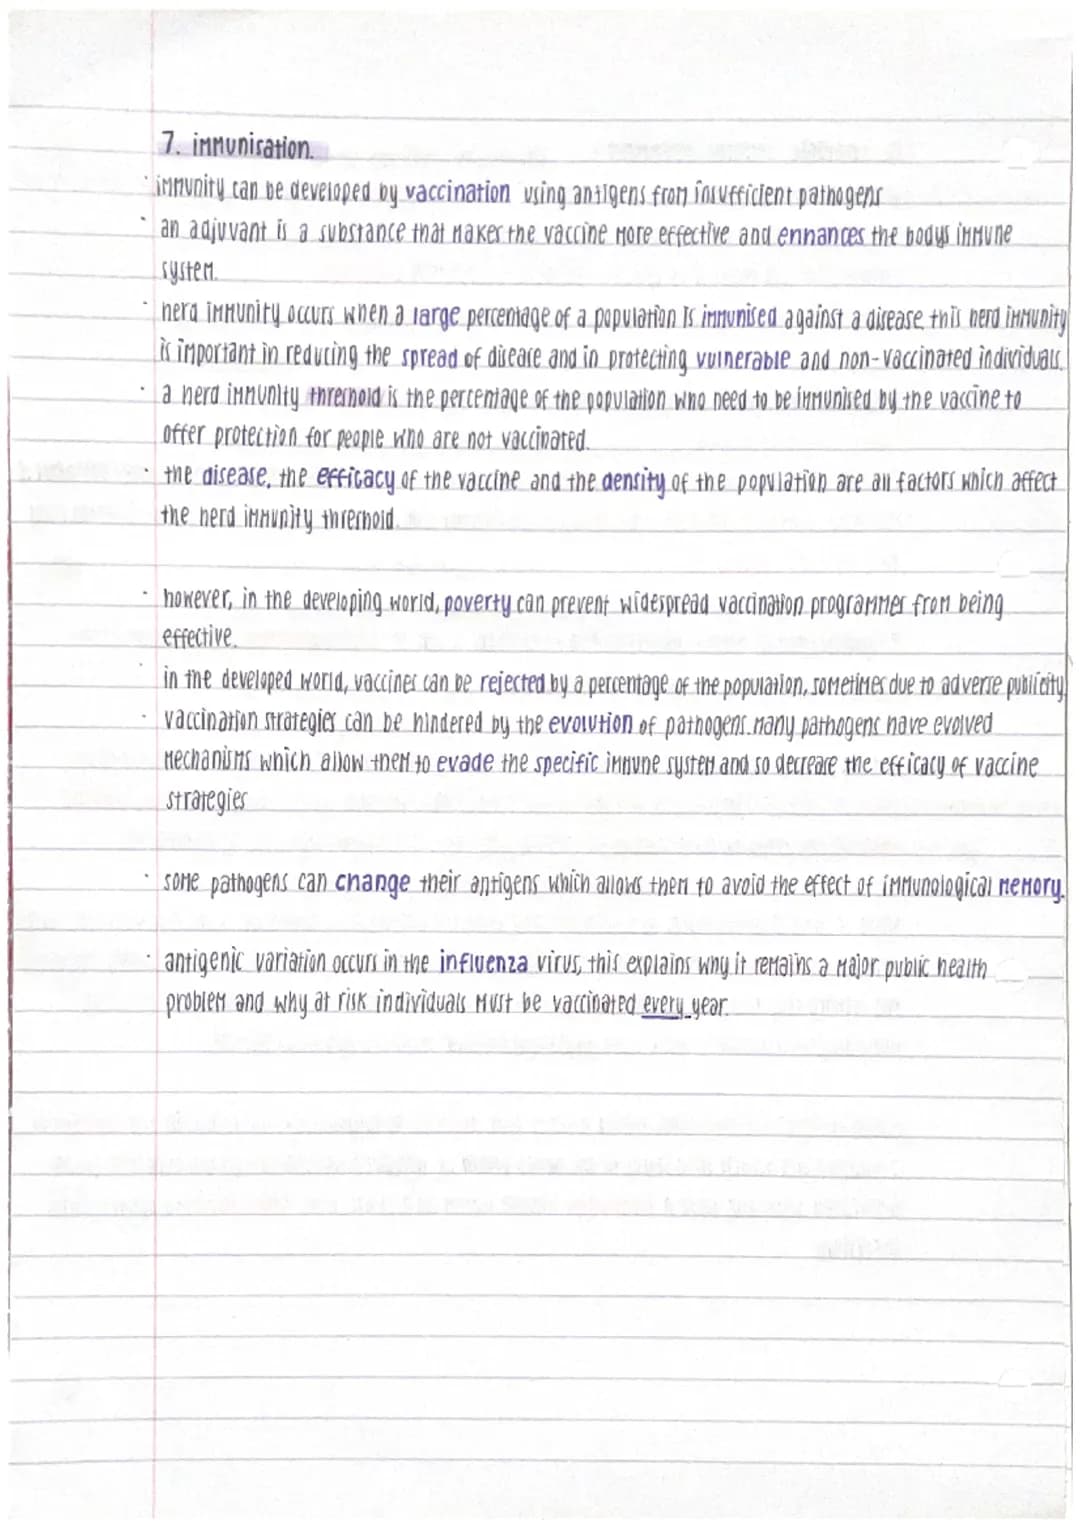 7. immunisation.
· immunity can be developed by vaccination using antigens from insufficient pathogens
· an adjuvant is a substance that makes the vaccine more effective and enhances the bodys immune
system.
· herd immunity occurs when a large percentage of a population is immunised against a disease, this herd immunity
is important in reducing the spread of disease and in protecting vulnerable and non-vaccinated individuals.
· a herd immunity threshold is the percentage of the population who need to be immunised by the vaccine to
offer protection for people who are not vaccinated.
· the disease, the efficacy of the vaccine and the density of the population are all factors which affect
the herd immunity threshold.
· however, in the developing world, poverty can prevent widespread vaccination programmes from being
effective.
· in the developed world, vaccines can be rejected by a percentage of the population, sometimes due to adverse publicity
· vaccination strategies can be hindered by the evolution of pathogens. many pathogens have evolved
mechanisms which allow them to evade the specific immune system and so decrease the efficacy of vaccine
strategies
· some pathogens can change their antigens which allows them to avoid the effect of immunological memory.
· antigenic variation occurs in the influenza virus, this explains why it remains a major public health
problem and why at risk individuals must be vaccinated every year.